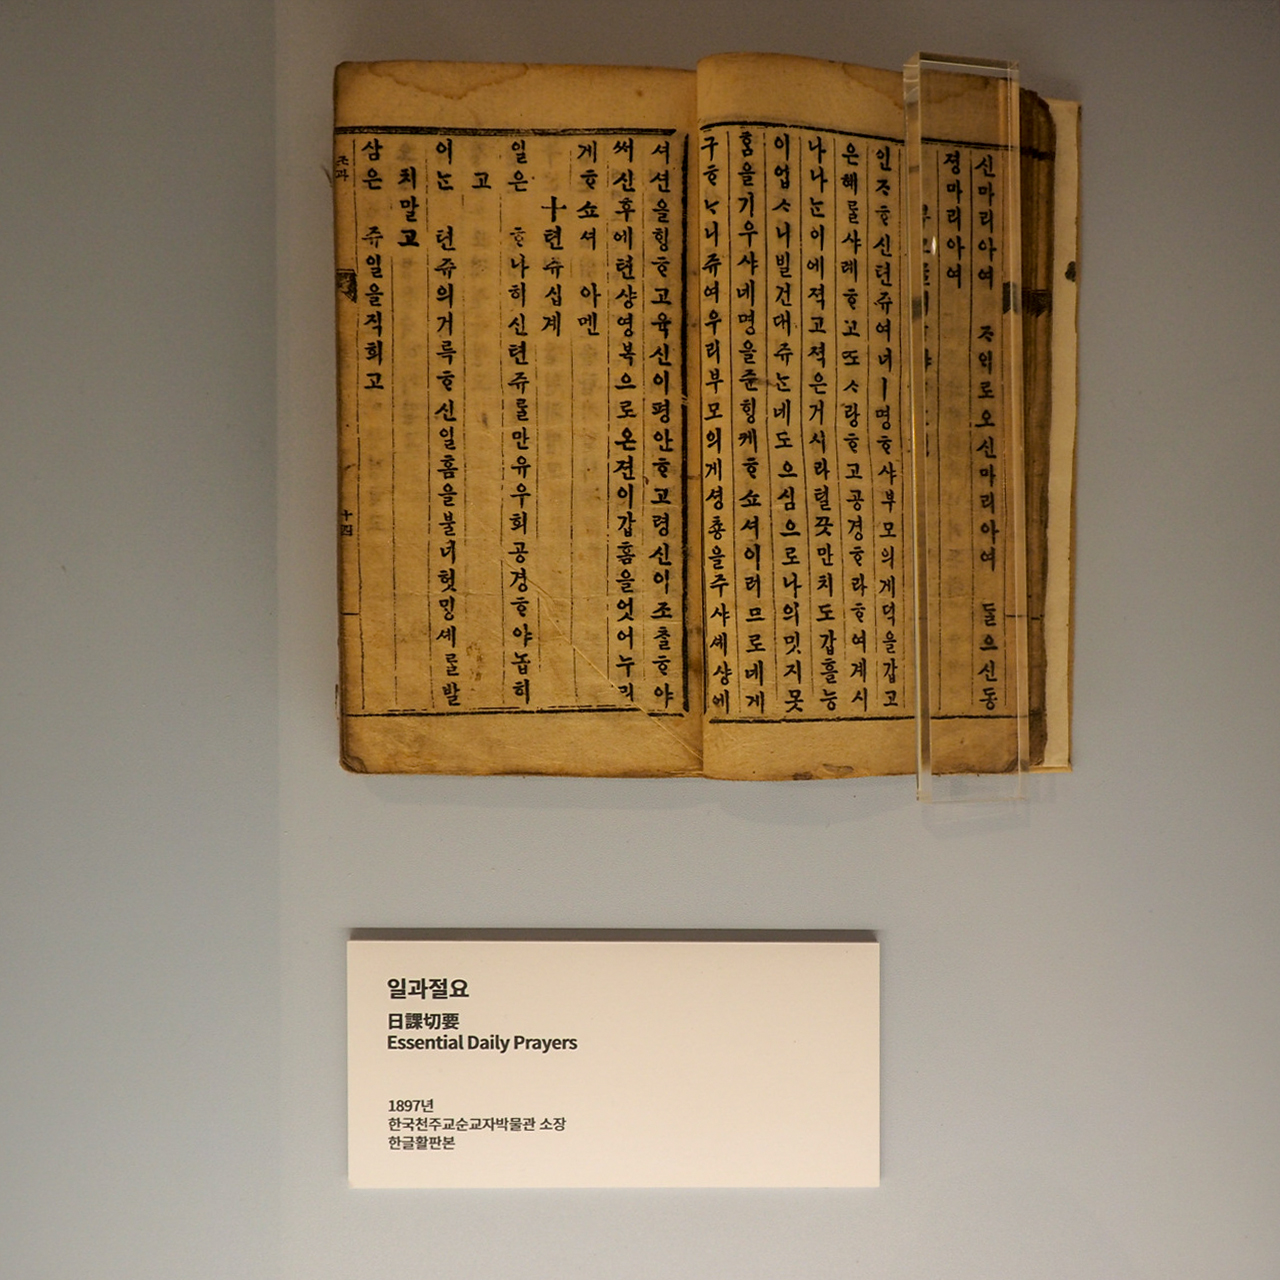 신마리아여 ᄌᆞ위로오신마리아여 둘으신동
졍마리아여
인ᄌᆞᄒᆞ신텬쥬여너ㅣ명ᄒᆞ샤부모의게덕을갑고
은혜ᄅᆞᆯ샤례ᄒᆞ고ᄯᅩᄉᆞ랑ᄒᆞ고공경ᄒᆞ라ᄒᆞ여계시
나나ᄂᆞᆫ이에젹고젹은거시라털ᄭᅳᆺ만치도갑흘능
이업ᄉᆞ니빌건대쥬ᄂᆞᆫ네도으심으로나의밋지못
홈을기우샤네명을쥰ᄒᆡᆼ케ᄒᆞ쇼셔이러므로네게
구ᄒᆞᄂᆞ니쥬여우리부모의게셩춍을주샤셰샹에
셔션을ᄒᆡᆼᄒᆞ고육신이평안ᄒᆞ고령신이조찰ᄒᆞ야
써신후에텬샹영복으로온젼이갑홈을엇어누리
게ᄒᆞ쇼셔 아멘
十텬쥬십계
일은 ᄒᆞ나히신텬쥬ᄅᆞᆯ만유우희공경ᄒᆞ야놉히
고
이ᄂᆞᆫ 텬쥬의거륵ᄒᆞ신일홈을불너헛ᄆᆡᆼ셰ᄅᆞᆯ발
치말고
삼은 쥬일을직희고
조과
十四
일과절요
日課切要
Essential Daily Prayers
1897년
한국천주교순교자박물관 소장
한글활판본